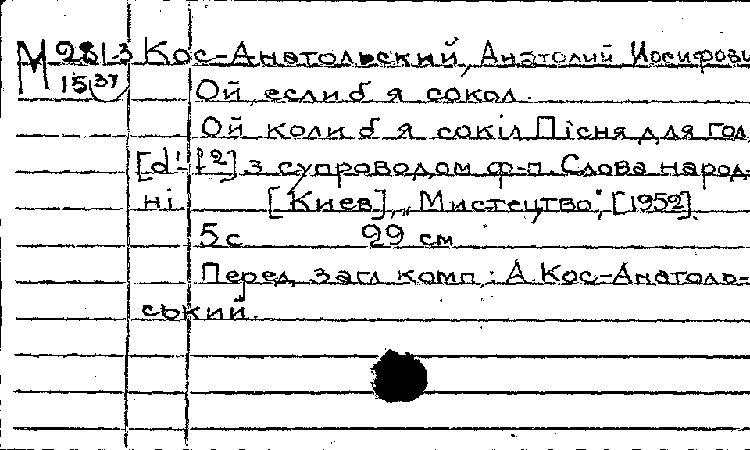 М 281-3 Кос-Анатольский, Анатолий Иосифови
15(37) Ой, если б я сокол.
Ой коли б я сокіл Пісня для гол.
[d¹-f²] з супроводом ф-п. Слова народ-
ні. [Киев], „Мистецтво", [1952].
5 с 29 см
Перед загл комп.: А Кос-Анатоль-
ський.